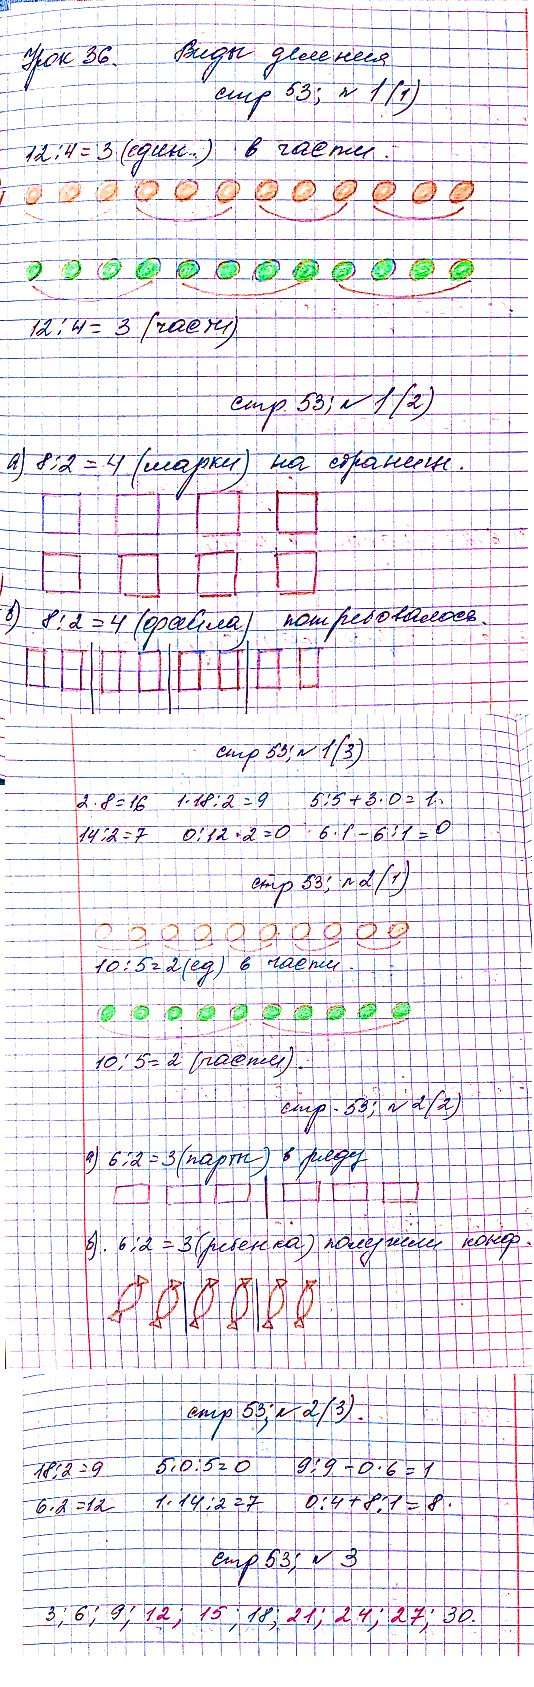 Урок 36. Виды деления
стр 53; № 1(1)
12:4=3 (един..) в части.
12:4= 3 (части)
стр. 53; № 1(2)
а) 8:2=4 (марки) на страниц.
б) 8:2=4 (файла) потребовалось.
стр 53; № 1(3)
2·8=16 1·18:2=9 5:5+3·0=1.
14:2=7 0:12·2=0 6·1-6:1=0
стр 53; №2(1)
10:5=2(ед) в части.
10:5=2 (части).
стр. 53; №2(2)
а) 6:2=3(парты) в ряду
б). 6:2=3(ребенка) получили конф.
стр 53; №2(3).
18:2=9 5·0:5=0 9:9-0·6=1
6·2=12 1·14:2=7 0:4+8:1=8.
стр 53; №3
3; 6; 9; 12; 15; 18; 21; 24; 27; 30.